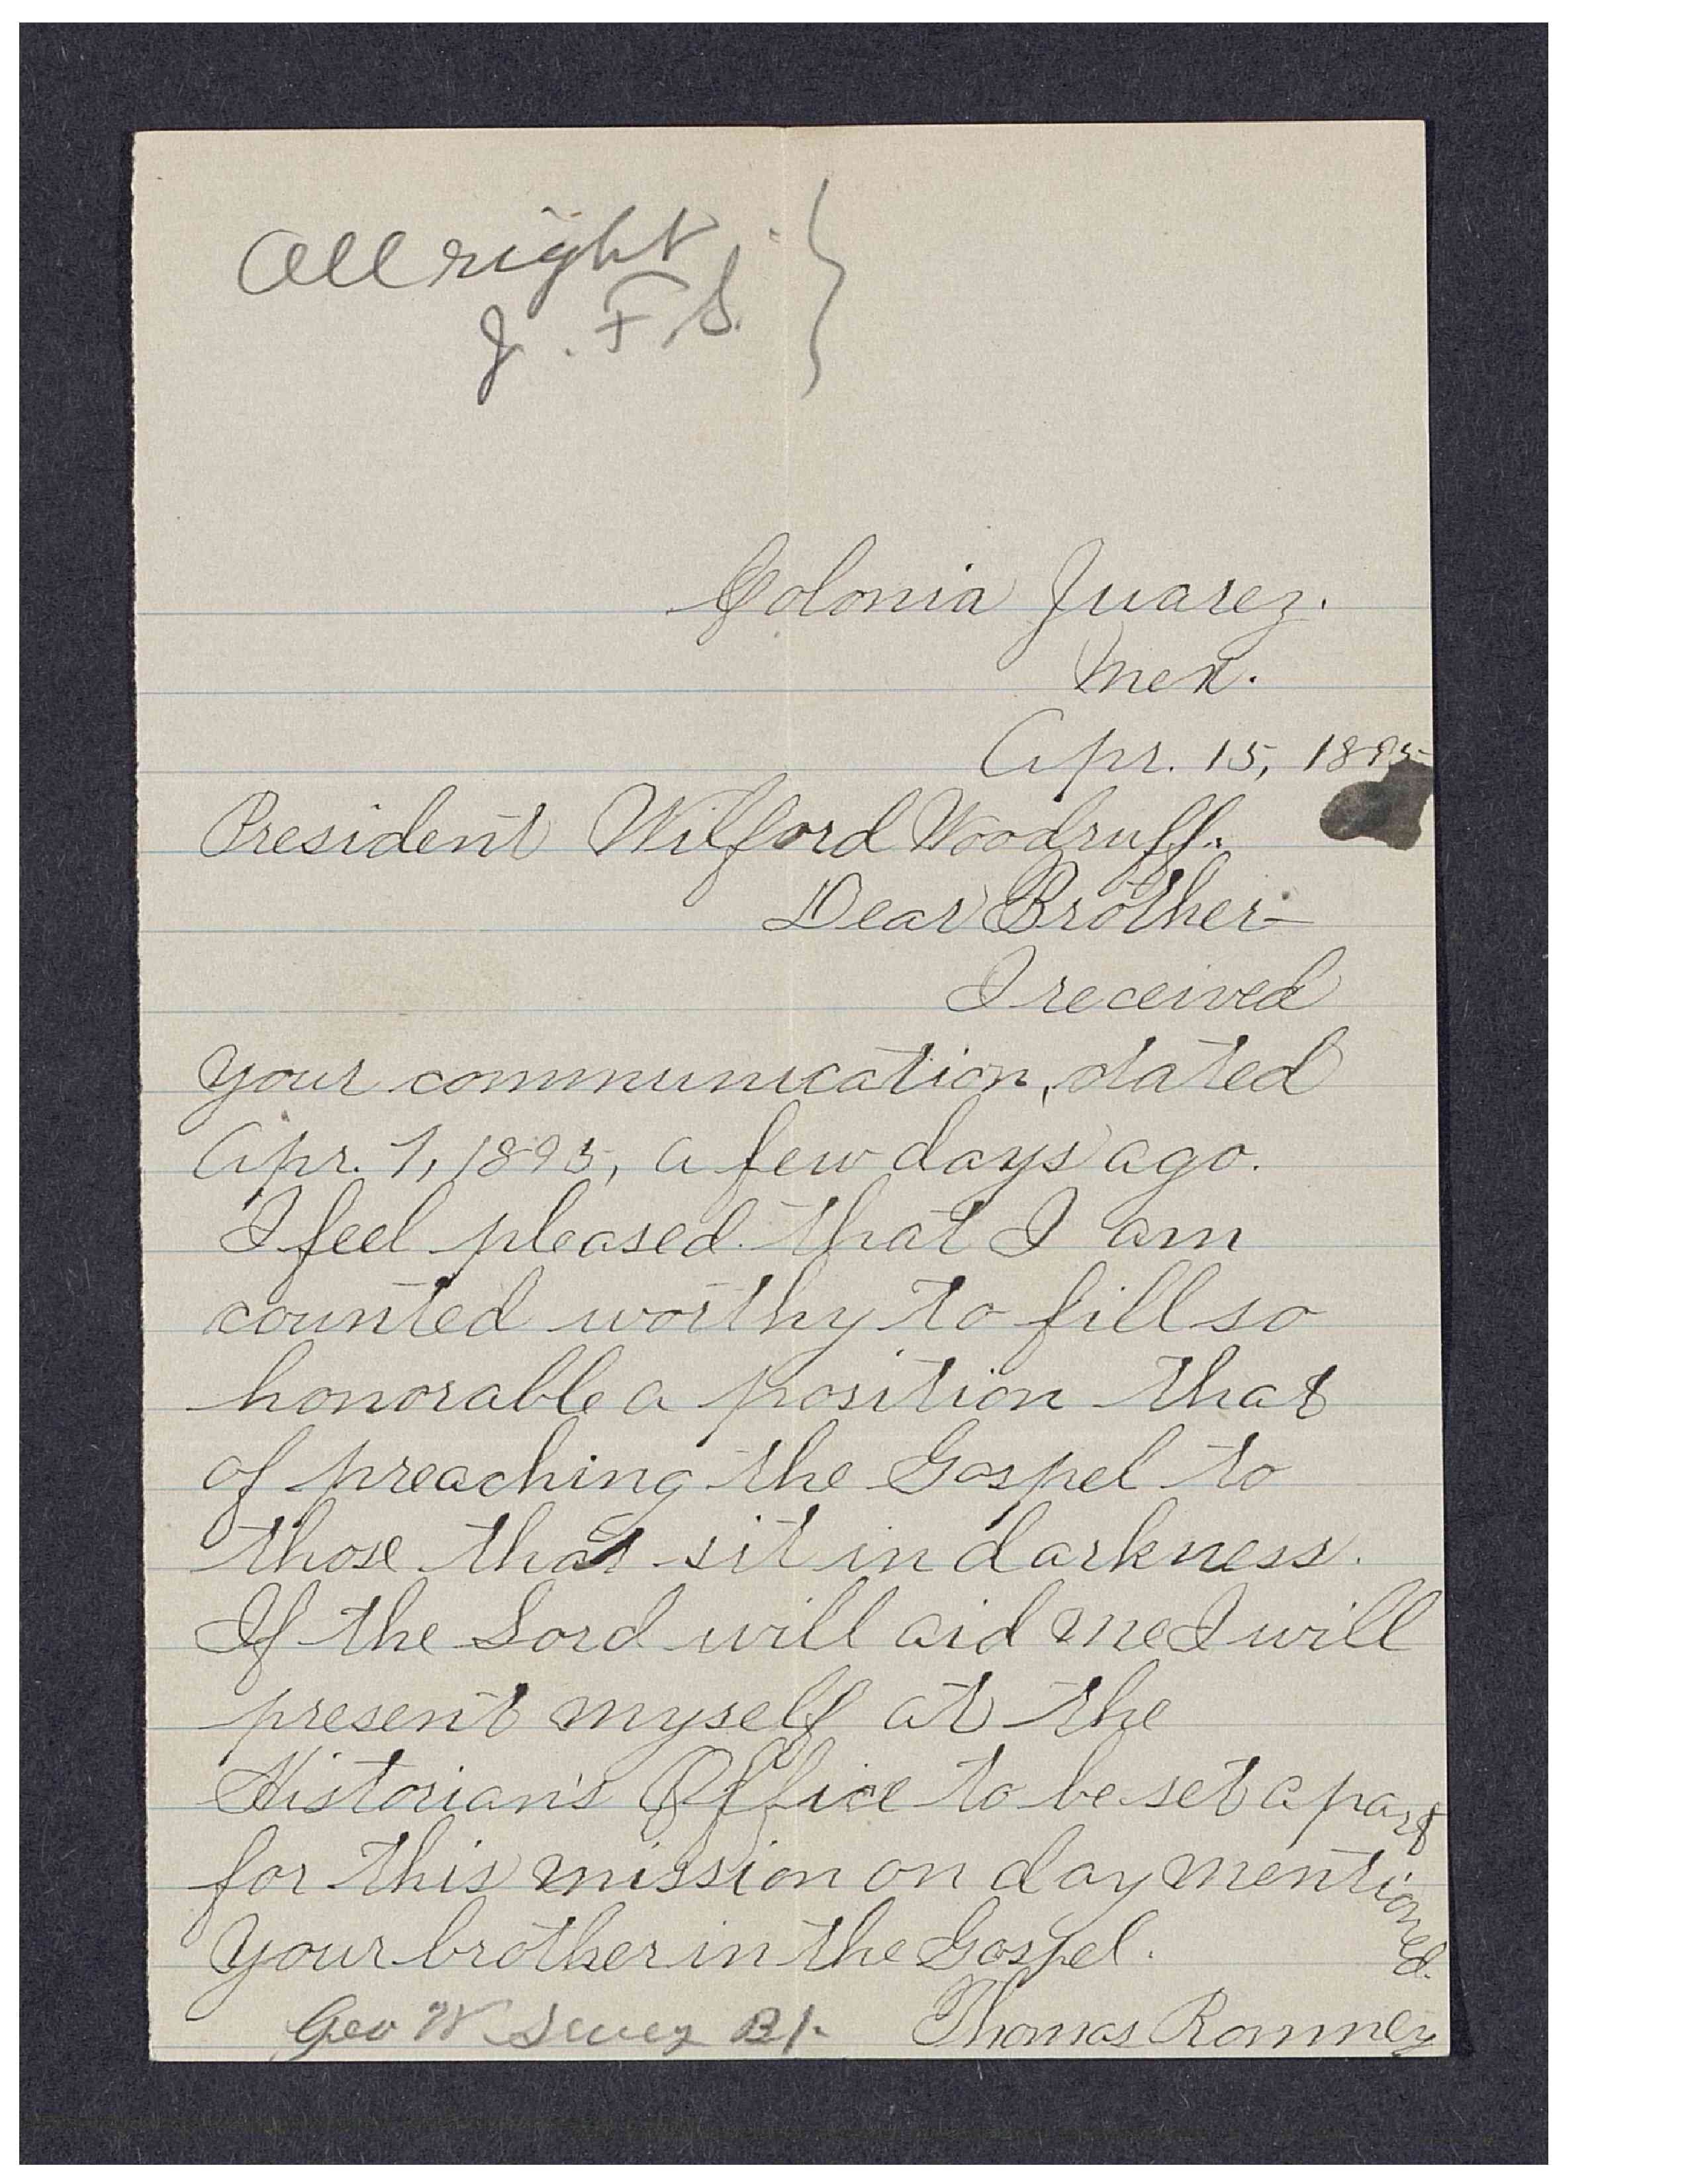 All right
J. F. S.
Colonia Juarez.
Mex.
Apr. 15, 1895
President Wilford Woodruff.
Dear Brother—
I received
your communication, dated
Apr. 1, 1895, a few days ago.
I feel pleased that I am
counted worthy to fill so
honorable a position that
of preaching the Gospel to
those that sit in darkness.
If the Lord will aid me I will
present myself at the
Historian's Office to be set apart
for this mission on day mentioned.
Your brother in the Gospel.
Thomas Romney
Geo W Sevey Bp.